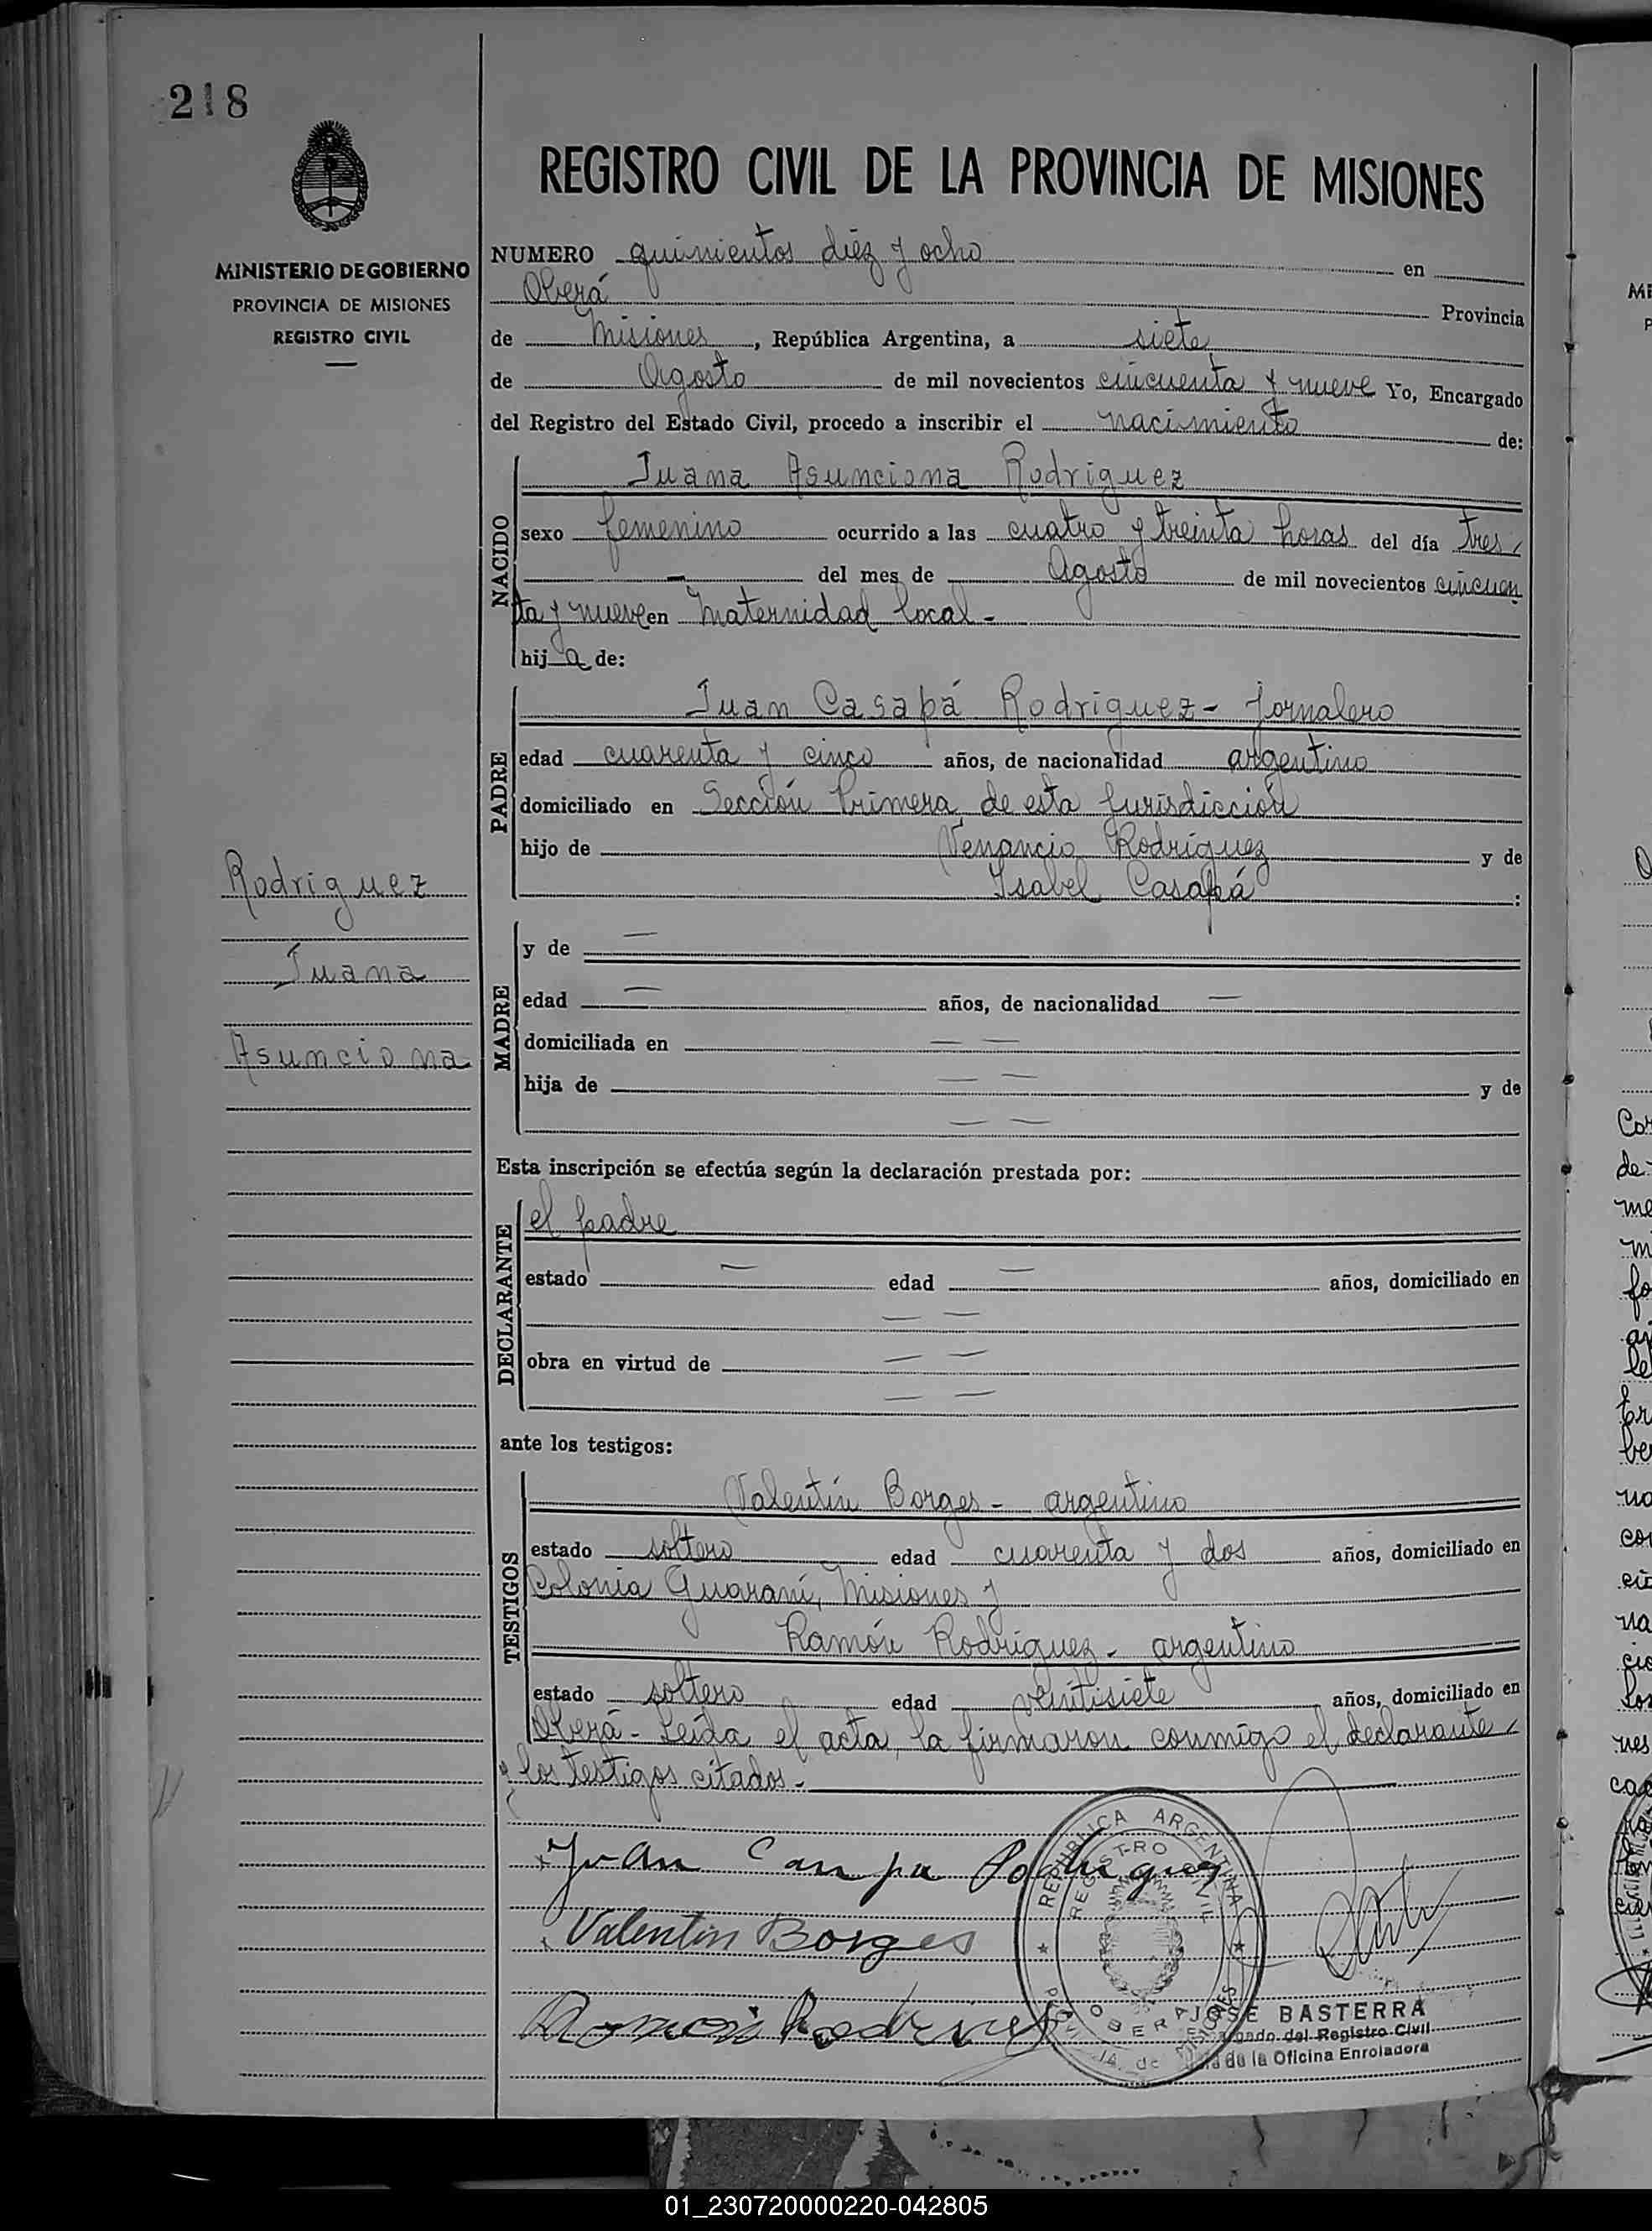 218
REGISTRO CIVIL DE LA PROVINCIA DE MISIONES
MINISTERIO DE GOBIERNO
PROVINCIA DE MISIONES
REGISTRO CIVIL
NUMERO quinientos diez y ocho en
Oberá Provincia
de Misiones, República Argentina, a siete
de Agosto de mil novecientos cincuenta y nueve Yo, Encargado
del Registro del Estado Civil, procedo a inscribir el nacimiento de:
NACIDO
Juana Asunciona Rodriguez
sexo femenino ocurrido a las cuatro y treinta horas del día tres
— del mes de Agosto de mil novecientos cincuen
ta y nueve en Maternidad local -
hija de:
PADRE
Juan Casapá Rodriguez - jornalero
edad cuarenta y cinco años, de nacionalidad argentino
domiciliado en Sección Primera de esta Jurisdicción
hijo de Venancio Rodríguez y de
Isabel Casapá :
Rodriguez
Juana
Asunciona
MADRE
y de —
edad — años, de nacionalidad —
domiciliada en — —
hija de — — y de
— —
Esta inscripción se efectúa según la declaración prestada por:
DECLARANTE
el padre
estado — edad — años, domiciliado en
— —
obra en virtud de — —
— —
ante los testigos:
TESTIGOS
Valentín Borges - argentino
estado soltero edad cuarenta y dos años, domiciliado en
Colonia Guaraní, Misiones y
Ramón Rodríguez - argentino
estado soltero edad veintisiete años, domiciliado en
Oberá - Leída el acta, la firmaron conmigo el declarante
y los testigos citados -
Juan Casapa Rodriguez
Valentin Borges
Ramon Rodriguez
REPUBLICA ARGENTINA
REGISTRO CIVIL
OBERA
JOSE BASTERRA
Encargado del Registro Civil
Jefe de la Oficina Enroladora
01_230720000220-042805